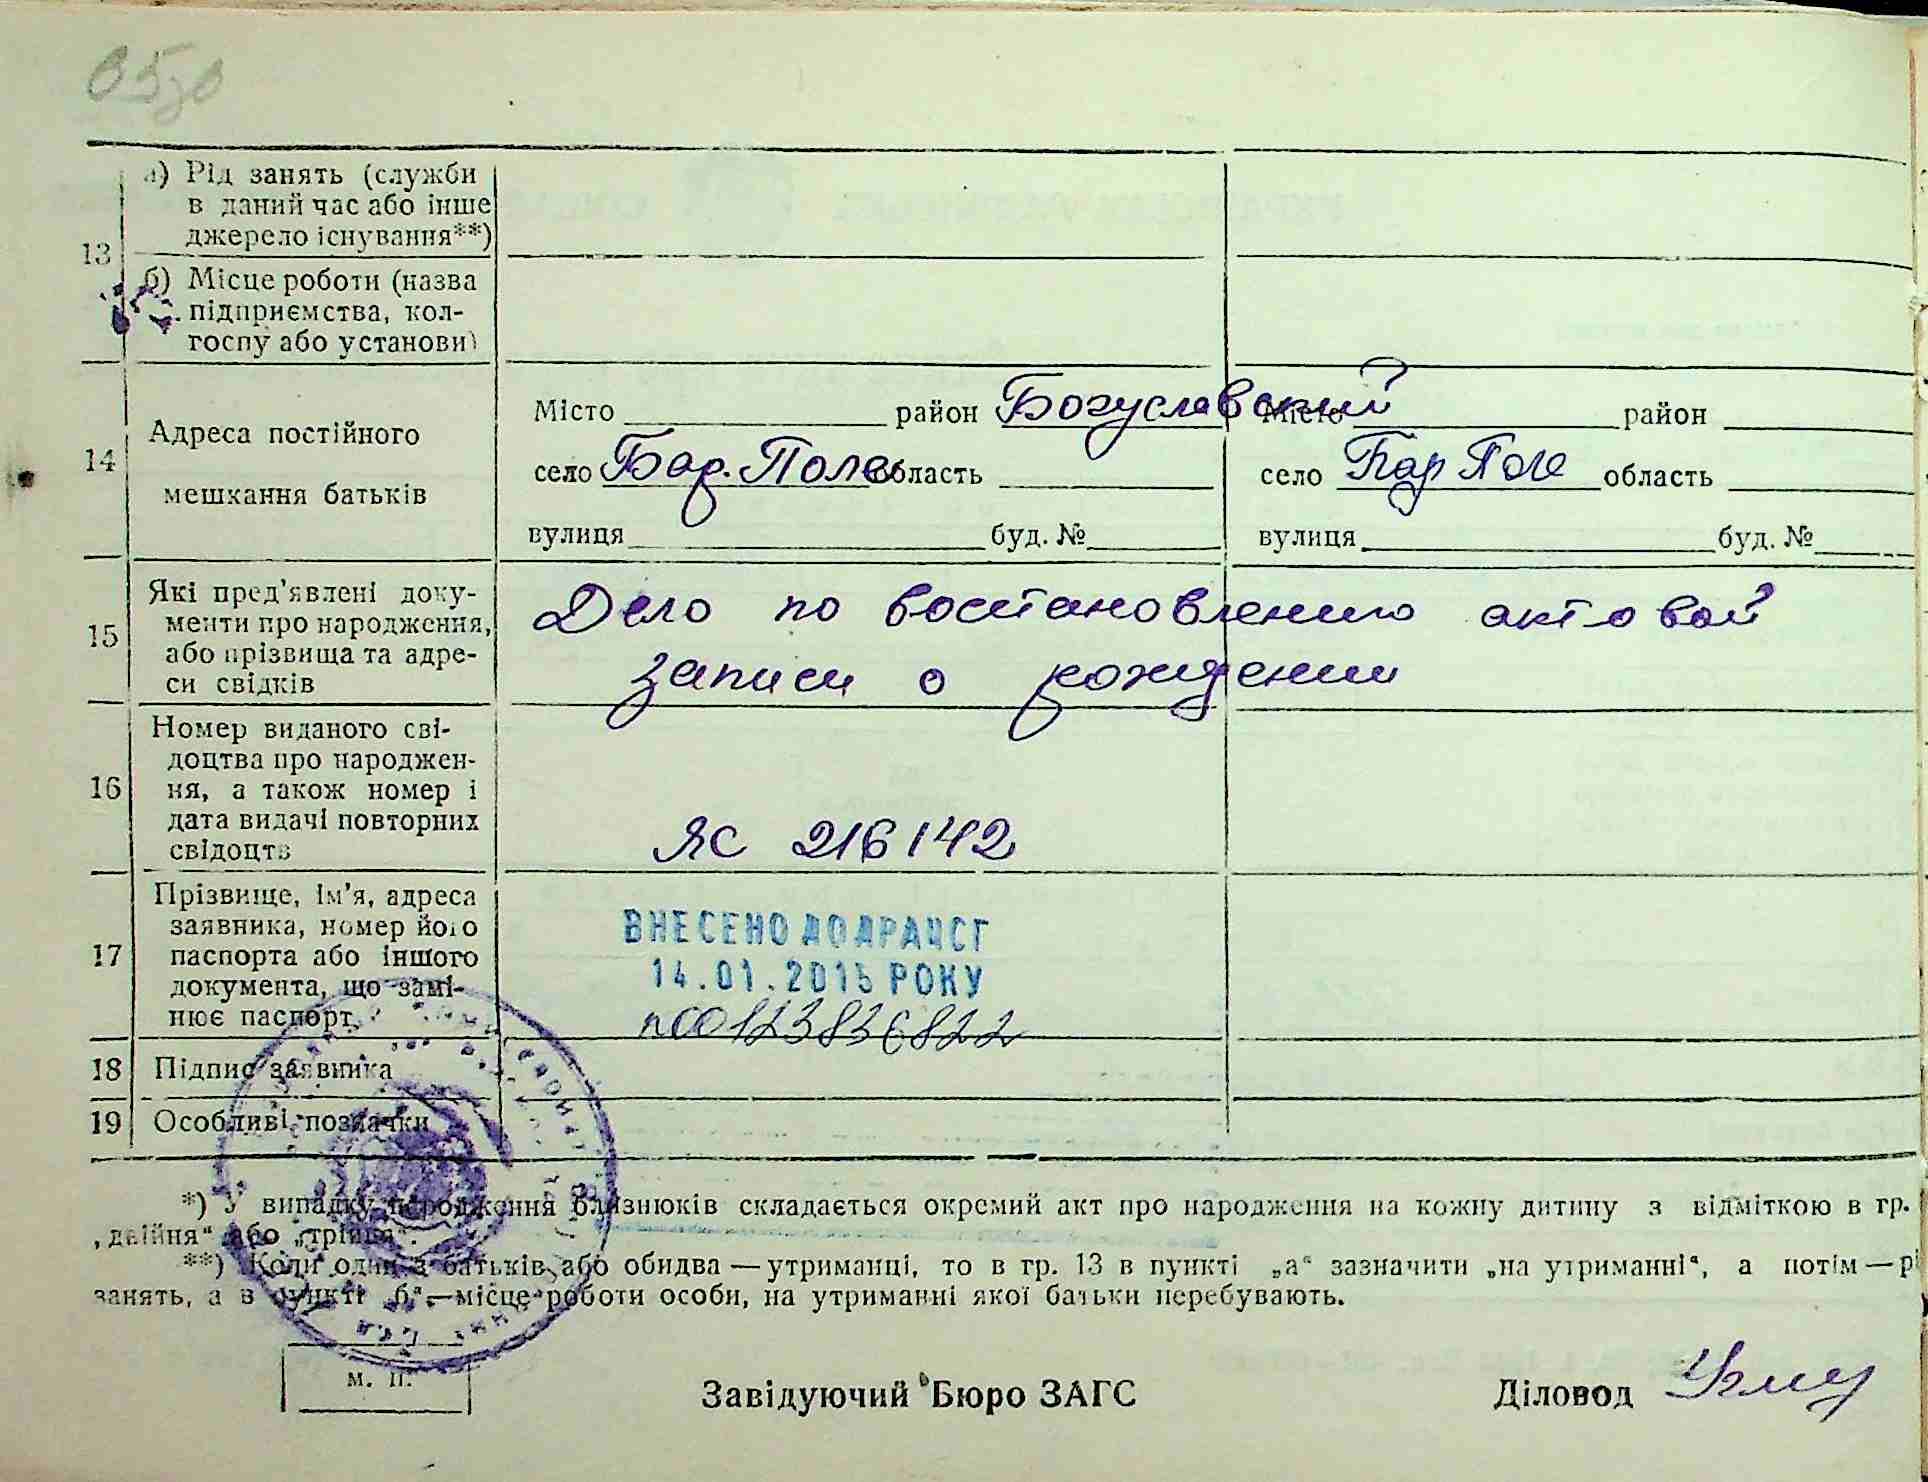 13
а) Рід занять (служби
в даний час або інше
джерело існування**)
б) Місце роботи (назва
підприємства, кол-
госпу або установи)
14
Адреса постійного
мешкання батьків
Місто район Богуславский
село Бар. Поле область
вулиця буд. №
Місто район
село Бар Поле область
вулиця буд. №
15
Які пред'явлені доку-
менти про народження,
або прізвища та адре-
си свідків
Дело по востановлению актовой
записи о рождении
16
Номер виданого сві-
доцтва про народжен-
ня, а також номер і
дата видачі повторних
свідоцтв
ЯС 216142
17
Прізвище, ім'я, адреса
заявника, номер його
паспорта або іншого
документа, що замі-
нює паспорт
ВНЕСЕНО ДО ДРАЦСГ
14.01.2015 РОКУ
n00123836822
18 Підпис заявника
19 Особливі позначки
*) У випадку народження близнюків складається окремий акт про народження на кожну дитину з відміткою в гр.
„двійня“ або „трійня“.
**) Коли один з батьків або обидва — утриманці, то в гр. 13 в пункті „а“ зазначити „на утриманні“, а потім — рі
занять, а в пункті „б“ — місце роботи особи, на утриманні якої батьки перебувають.
м. п.
Завідуючий Бюро ЗАГС
Діловод